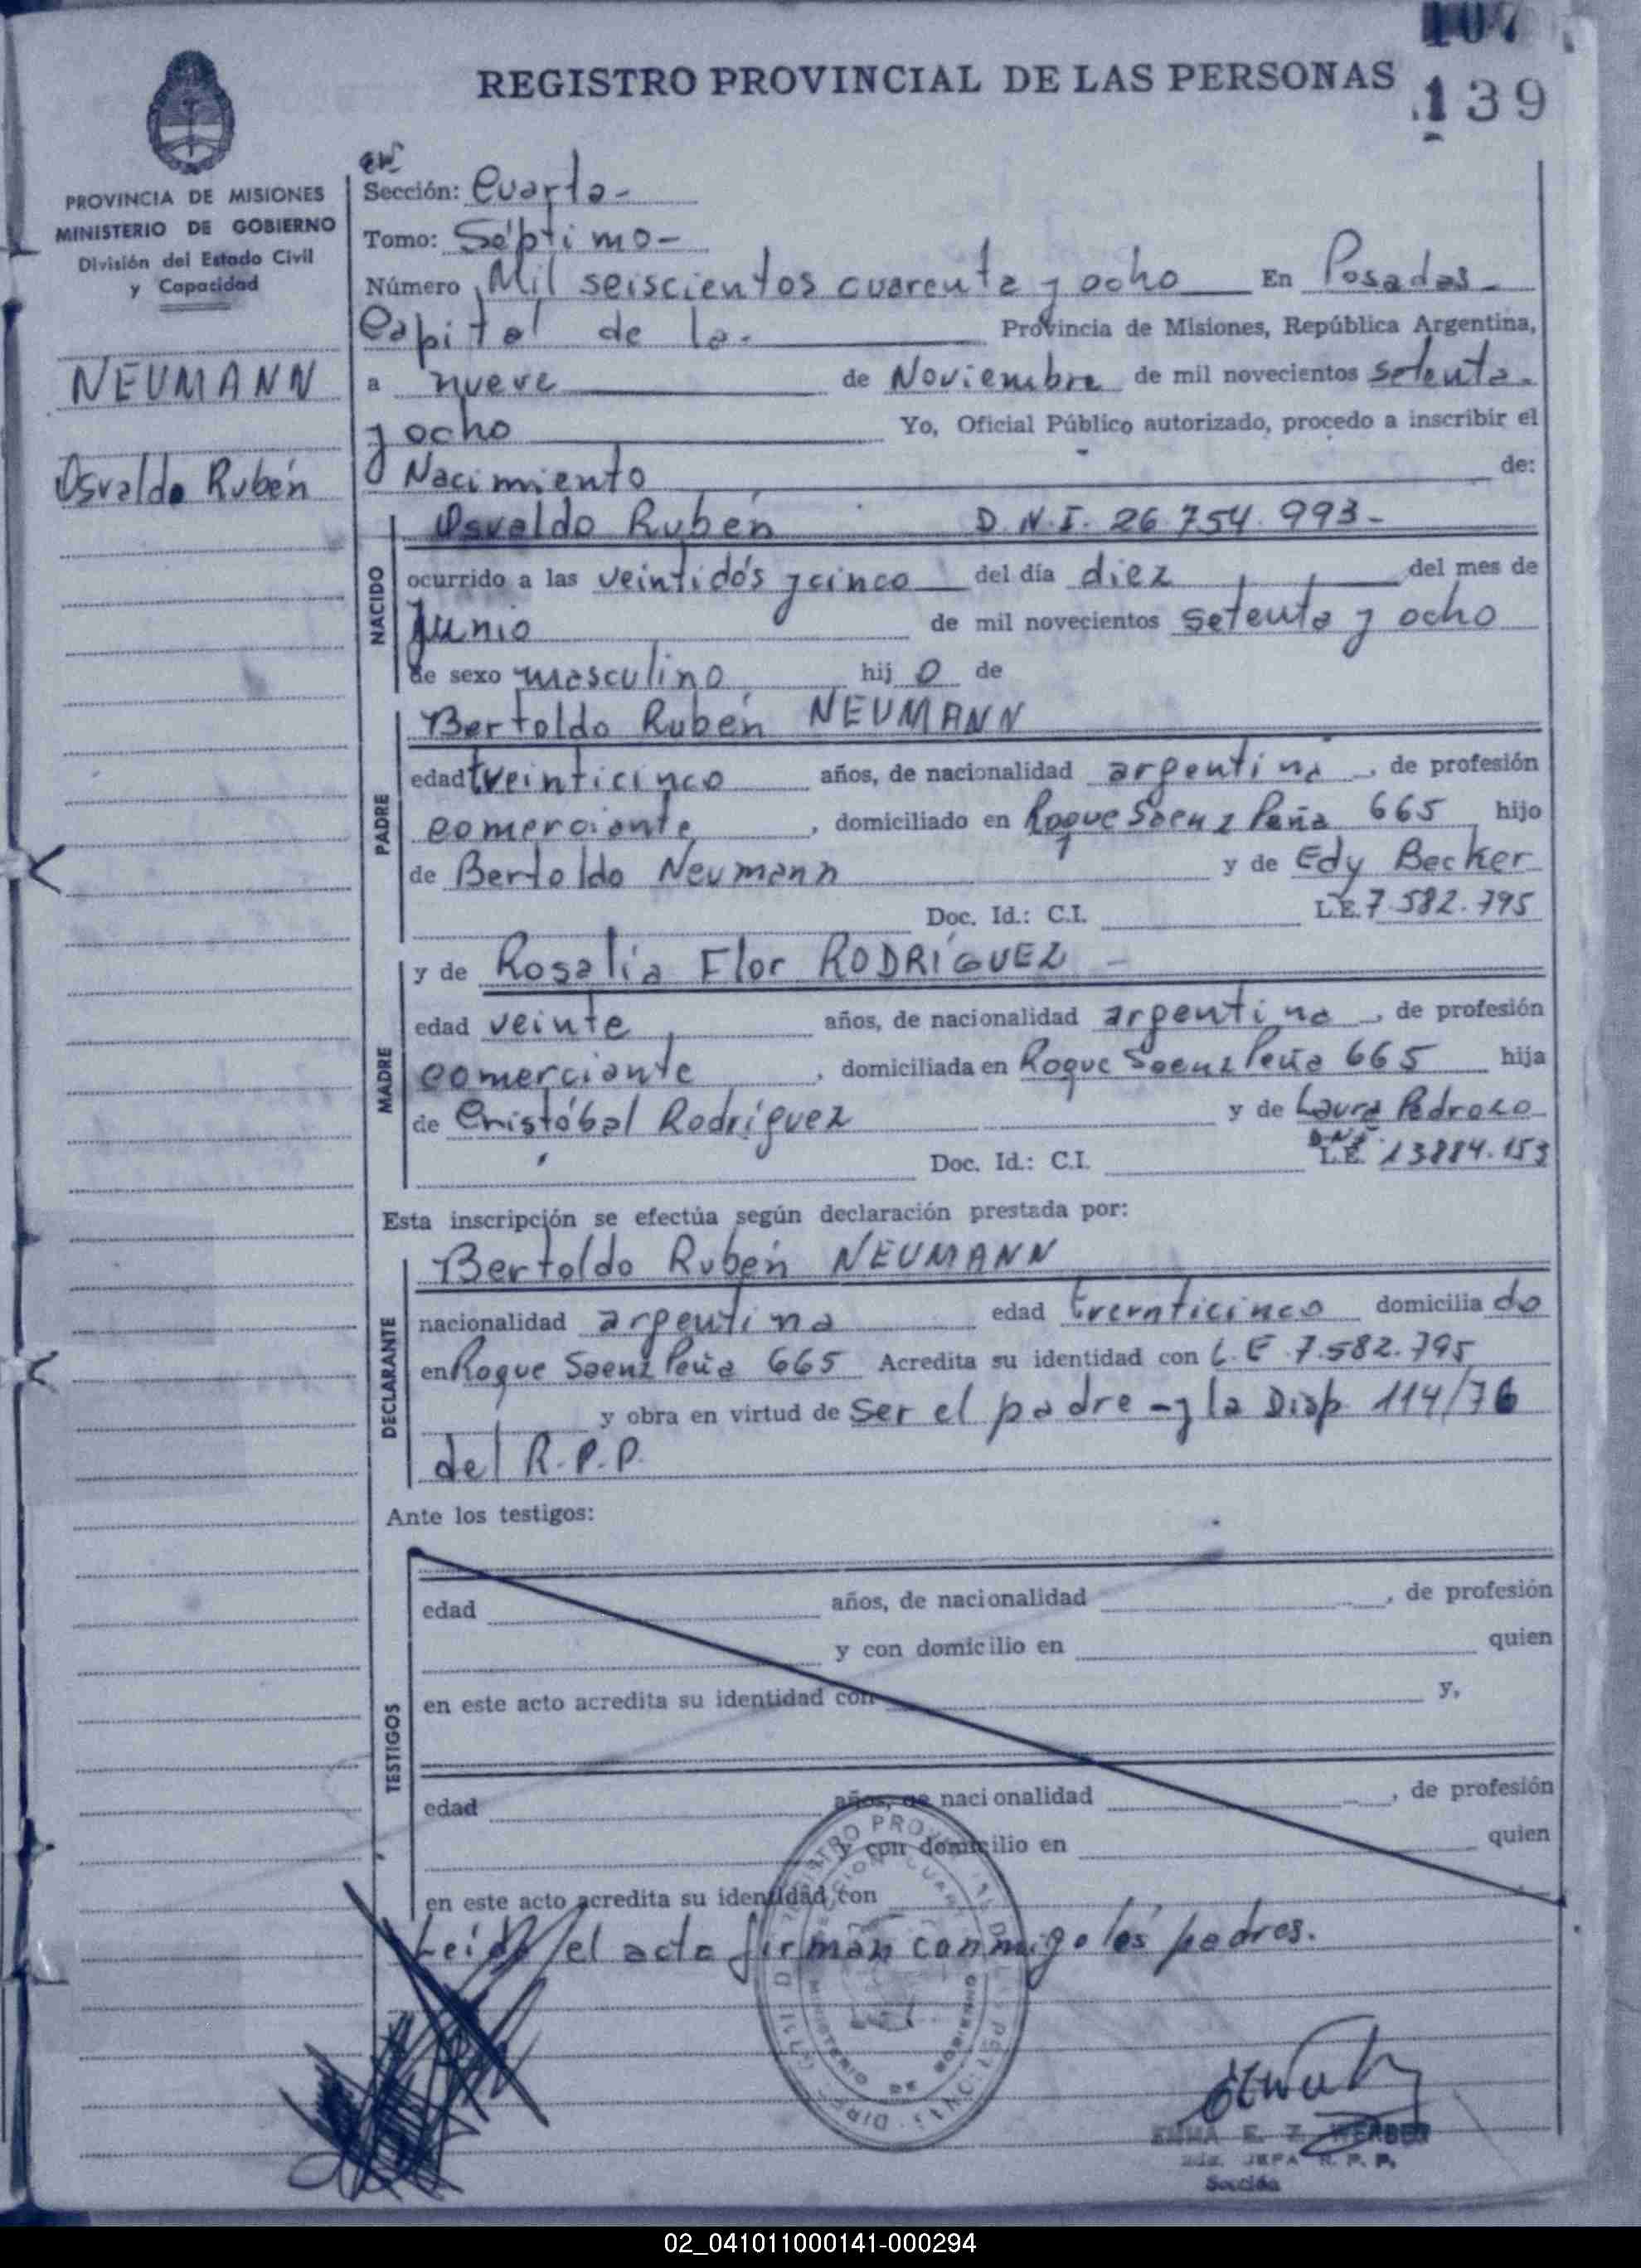 107
REGISTRO PROVINCIAL DE LAS PERSONAS
139
PROVINCIA DE MISIONES
MINISTERIO DE GOBIERNO
División del Estado Civil
y Capacidad
NEUMANN
Osvaldo Rubén
Sección: Cuarta-
Tomo: Séptimo-
Número Mil seiscientos cuarenta y ocho En Posadas-
Capital de la- Provincia de Misiones, República Argentina,
a nueve de Noviembre de mil novecientos setenta-
y ocho Yo, Oficial Público autorizado, procedo a inscribir el
Nacimiento de:
NACIDO
Osvaldo Rubén D.N.I. 26.754.993-
ocurrido a las veintidós y cinco del día diez del mes de
Junio de mil novecientos setenta y ocho
de sexo masculino hij o de
PADRE
Bertoldo Rubén NEUMANN
edad treinticinco años, de nacionalidad argentina, de profesión
comerciante, domiciliado en Roque Saenz Peña 665 hijo
de Bertoldo Neumann y de Edy Becker
Doc. Id.: C.I. L.E. 7.582.795
MADRE
y de Rosalía Flor RODRÍGUEZ -
edad veinte años, de nacionalidad argentina, de profesión
comerciante, domiciliada en Roque Saenz Peña 665 hija
de Cristóbal Rodríguez y de Laura Pedrozo
Doc. Id.: C.I. D.N.I. L.E. 13884.153
Esta inscripción se efectúa según declaración prestada por:
DECLARANTE
Bertoldo Rubén NEUMANN
nacionalidad argentina edad treinticinco domicilia do
en Roque Saenz Peña 665 Acredita su identidad con L.E 7.582.795
y obra en virtud de ser el padre - y la Disp. 114/76
del R.P.P.
Ante los testigos:
TESTIGOS
edad años, de nacionalidad , de profesión
y con domicilio en quien
en este acto acredita su identidad con y,
edad años, de nacionalidad , de profesión
y con domicilio en quien
en este acto acredita su identidad con
Leído el acta firman conmigo los padres.
EMMA E. Z. WERBER
JEFA R. P. P.
Sección
02_041011000141-000294